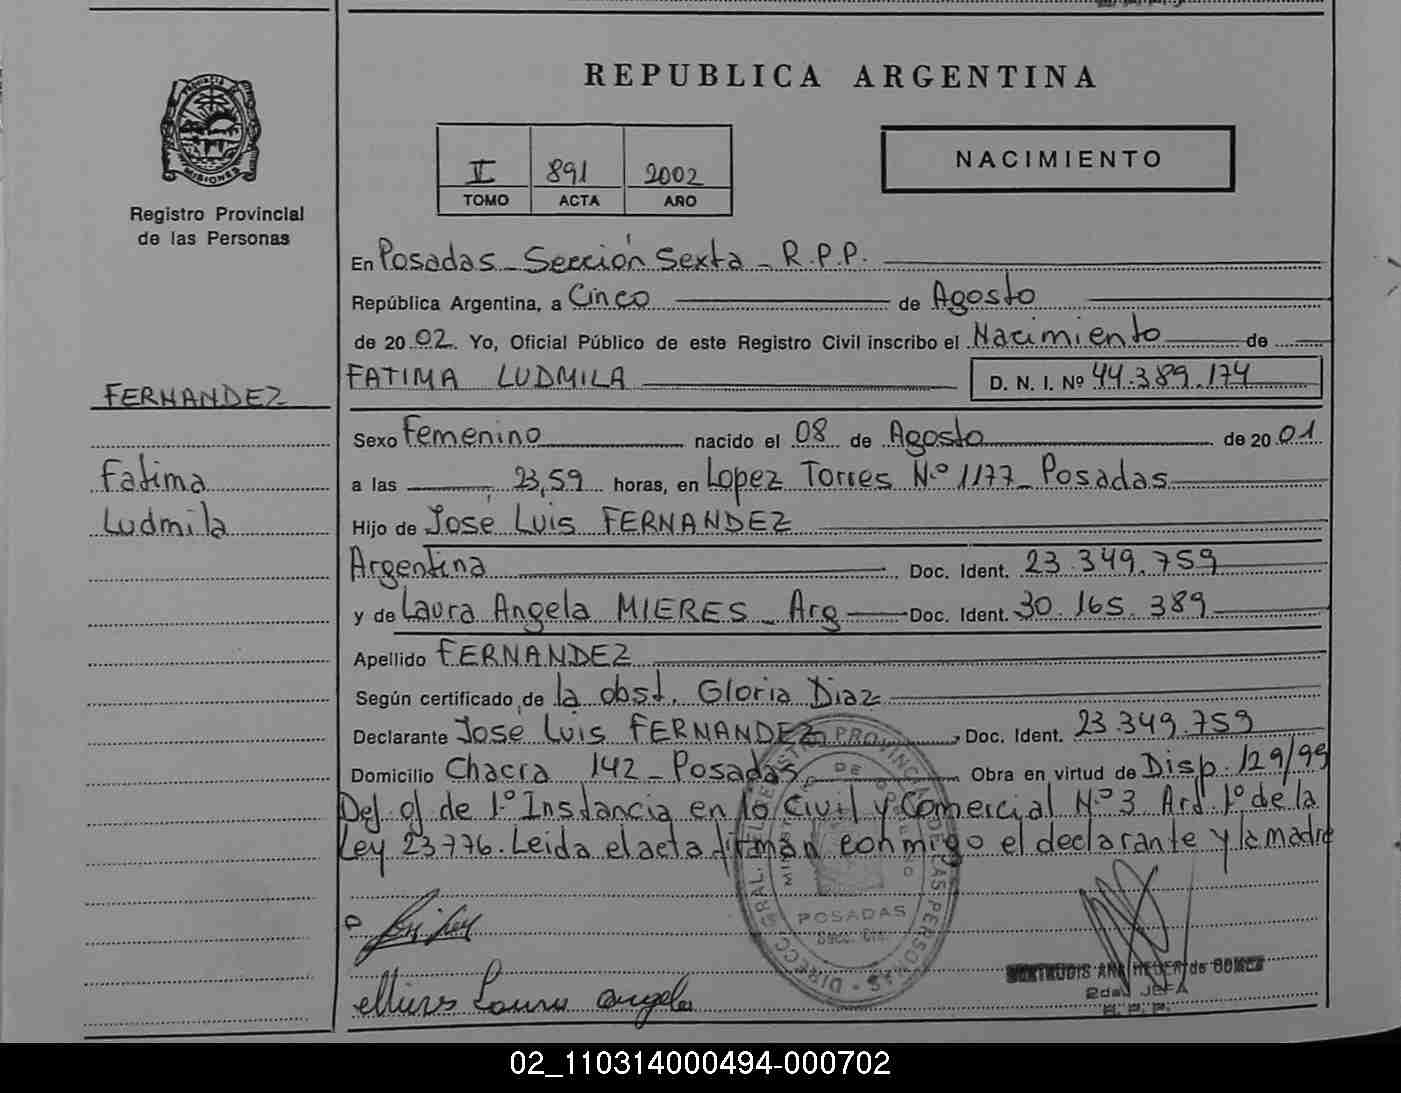 REPUBLICA ARGENTINA
PROVINCIA DE
MISIONES
Registro Provincial
de las Personas
II 891 2002
TOMO ACTA AÑO
NACIMIENTO
En Posadas - Sección Sexta - R.P.P.
República Argentina, a Cinco de Agosto
de 2002. Yo, Oficial Público de este Registro Civil inscribo el Nacimiento de
FATIMA LUDMILA D. N. I. Nº 44.389.174
FERNANDEZ
Sexo Femenino nacido el 08 de Agosto de 2001
Fatima
a las 23,59 horas, en Lopez Torres N.º 1177 - Posadas
Ludmila
Hijo de José Luis FERNANDEZ
Argentina Doc. Ident. 23.349.759
y de Laura Angela MIERES - Arg Doc. Ident. 30.165.389
Apellido FERNANDEZ
Según certificado de la obst. Gloria Diaz
Declarante José Luis FERNANDEZ Doc. Ident. 23.349.759
Domicilio Chacra 142 - Posadas Obra en virtud de Disp. 129/99
de 1º Instancia en lo Civil y Comercial N.º 3 Art. 1º de la
Ley 23.776. Leida el acta firman conmigo el declarante y la madre
DIRECC. GRAL. DEL REGISTRO PROVINCIAL DE LAS PERSONAS
MINISTERIO DE GOBIERNO
POSADAS
Mieres Laura Angela
2da. JEFA
R. P. P.
02_110314000494-000702